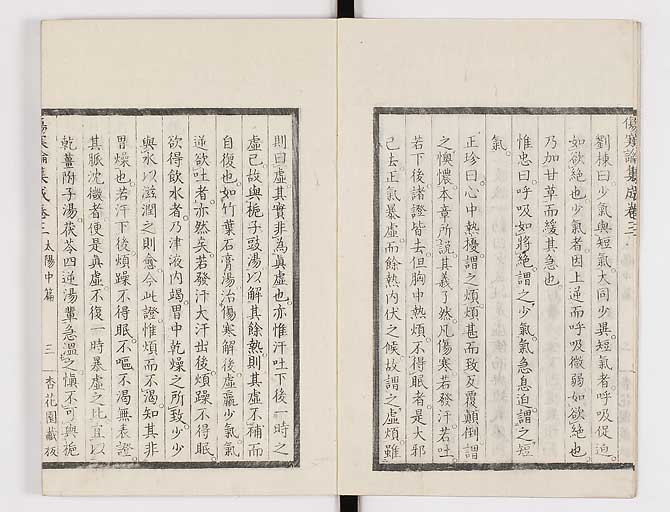 傷寒論集成卷三
劉棟曰少氣與短氣大同少異短氣者呼吸促迫
如欲絕也少氣者因上逆而呼吸微弱如欲絕也
乃加甘草而緩其急也
惟忠曰呼吸如將絕謂之少氣氣急息迫謂之短
氣
正珍曰心中熱擾謂之煩煩甚而致反覆顛倒謂
之懊憹本章所說其義了然凡傷寒若發汗若吐
若下後諸證皆去但胸中熱煩不得眠者是大邪
已去正氣暴虛而餘熱內伏之候故謂之虛煩雖
則曰虛其實非為眞虛也亦惟汗吐下後一時之
虛已故與梔子豉湯以解其餘熱則其虛不補而
自復也如竹葉石膏湯治傷寒解後虛羸少氣氣
逆欲吐者亦然矣若發汗大汗出後煩躁不得眠
欲得飲水者乃津液內竭胃中乾燥之所致少少
與水以滋潤之則愈今此證惟煩而不渴知其非
胃燥也若汗下後煩躁不得眠不嘔不渴無表證
其脈沈微者便是眞虛不復一時暴虛之比宜以
乾薑附子湯茯苓四逆湯輩急溫之愼不可與梔
傷寒論集成卷三 太陽中篇 三 杏花園藏板